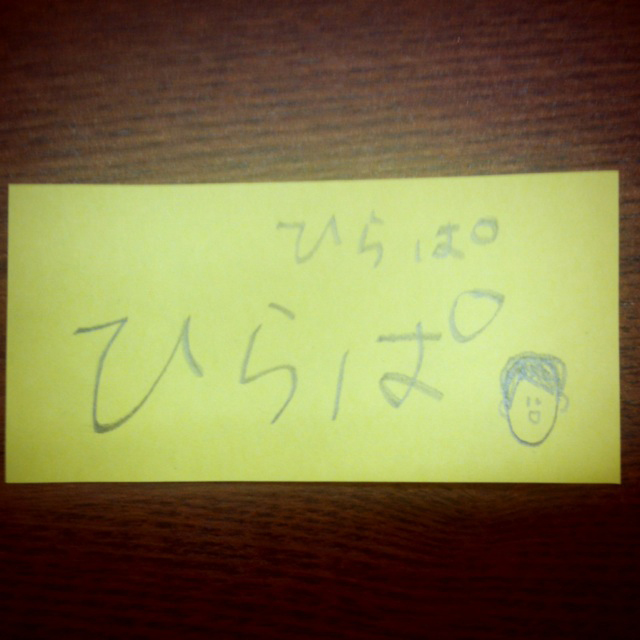 ひらぱ
ひらぱ